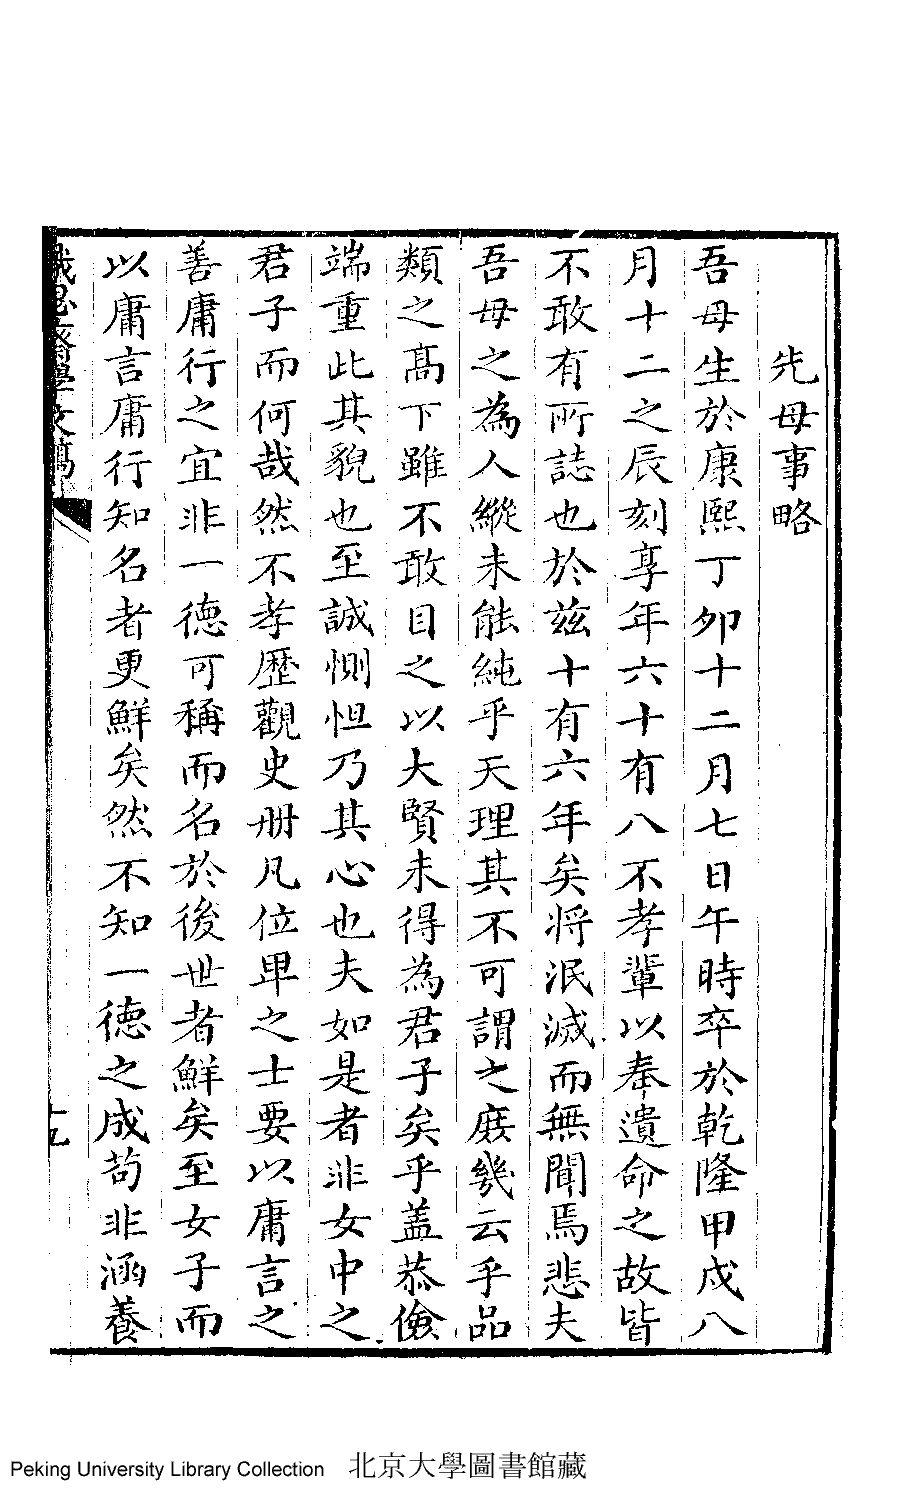 先母事略
吾母生於康熙丁卯十二月七日午時卒於乾隆甲戌八
月十二之辰刻享年六十有八不孝輩以奉遺命之故皆
不敢有所誌也於茲十有六年矣將泯滅而無聞焉悲夫
吾母之為人縱未能純乎天理其不可謂之庶幾云乎品
類之高下雖不敢目之以大賢未得為君子矣乎蓋恭儉
端重此其貌也至誠惻怛乃其心也夫如是者非女中之
君子而何哉然不孝歷觀史册凡位卑之士要以庸言之
善庸行之宜非一德可稱而名於後世者鮮矣至女子而
以庸言庸行知名者更鮮矣然不知一德之成苟非涵養
齋學文
Peking University Library Collection 北京大學圖書館藏